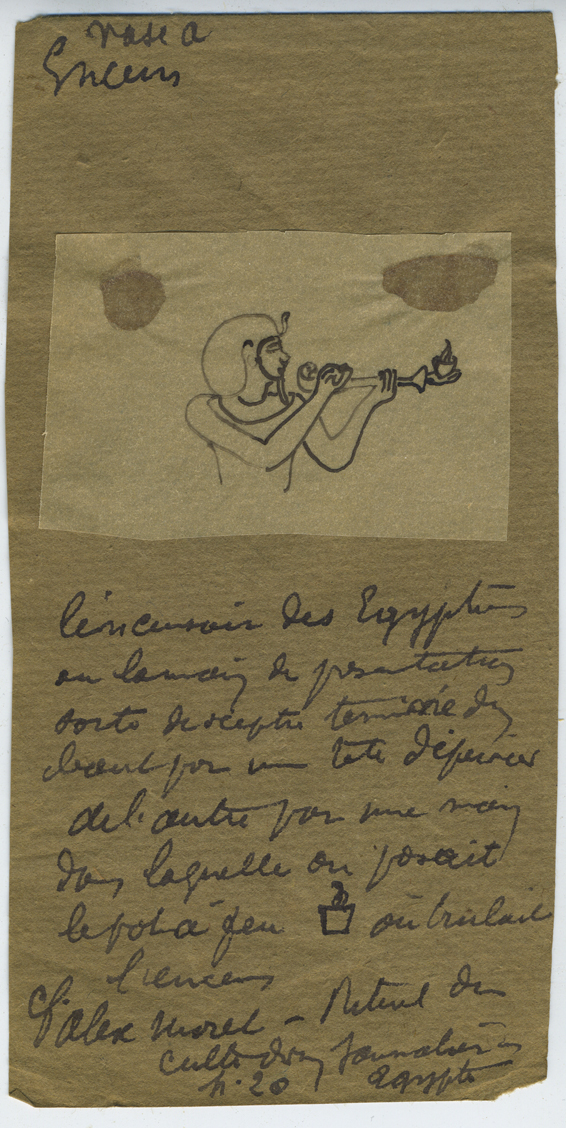 vase a
Encens
l'encensoir des Egyptiens
ou la main de présentation
sorte de sceptre terminée d'un
bout par une tete d'épervier
de l'autre par une main
dans laquelle on posait
le pot à feu où brulait
l'encens
cf. Alex Moret - Rituel du
culte divin Journalier en
p. 20 Egypte